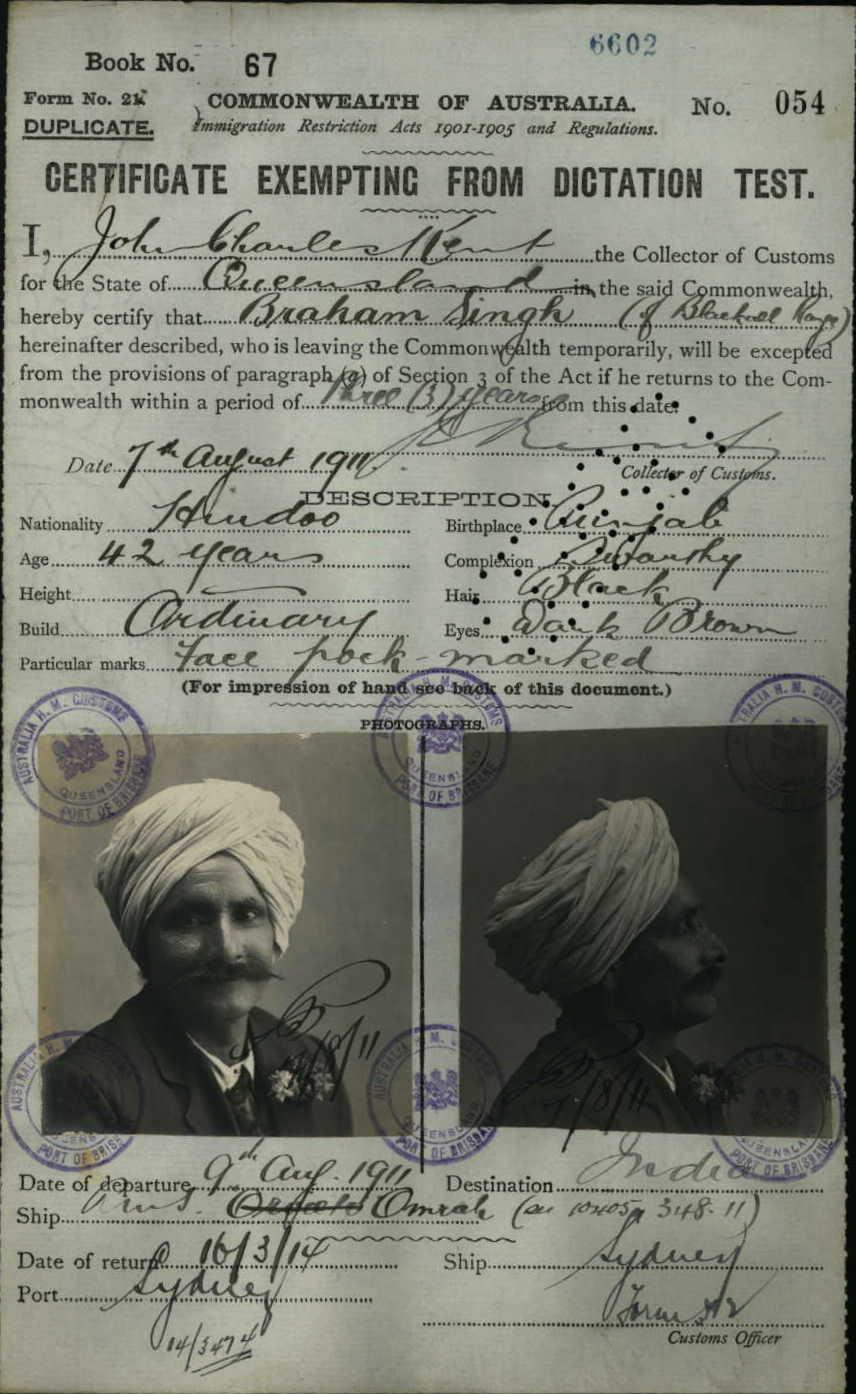 6602
Book No. 67
Form No. 21
COMMONWEALTH OF AUSTRALIA. No. 054
DUPLICATE. Immigration Restriction Acts 1901-1905 and Regulations.
CERTIFICATE EXEMPTING FROM DICTATION TEST.
I, John Charles Kent the Collector of Customs
for the State of Queensland in the said Commonwealth,
hereby certify that Braham Singh (of Blackall Range)
hereinafter described, who is leaving the Commonwealth temporarily, will be excepted
from the provisions of paragraph (a) of Section 3 of the Act if he returns to the Com-
monwealth within a period of Three (3) years from this date.
Date 7th August 1911.
Collector of Customs.
DESCRIPTION.
Nationality Hindoo Birthplace Punjab
Age 42 years Complexion Swarthy
Height Hair Black
Build Ordinary Eyes Dark Brown
Particular marks Face pock-marked
(For impression of hand see back of this document.)
PHOTOGRAPHS.
AUSTRALIA H. M. CUSTOMS QUEENSLAND PORT OF BRISBANE
AUSTRALIA H. M. CUSTOMS QUEENSLAND PORT OF BRISBANE
AUSTRALIA H. M. CUSTOMS
7/8/11
7/8/11
AUSTRALIA H. M. QUEENSLAND PORT OF BRISBANE
AUSTRALIA H. M. CUSTOMS QUEENSLAND PORT OF BRISBANE
AUSTRALIA H. M. CUSTOMS QUEENSLAND PORT OF BRISBANE
Date of departure 9th Aug. 1911 Destination India
Ship R.M.S. Omrah
Date of return 16/3/14 Ship Sydney
Port Sydney
14/3474
Customs Officer